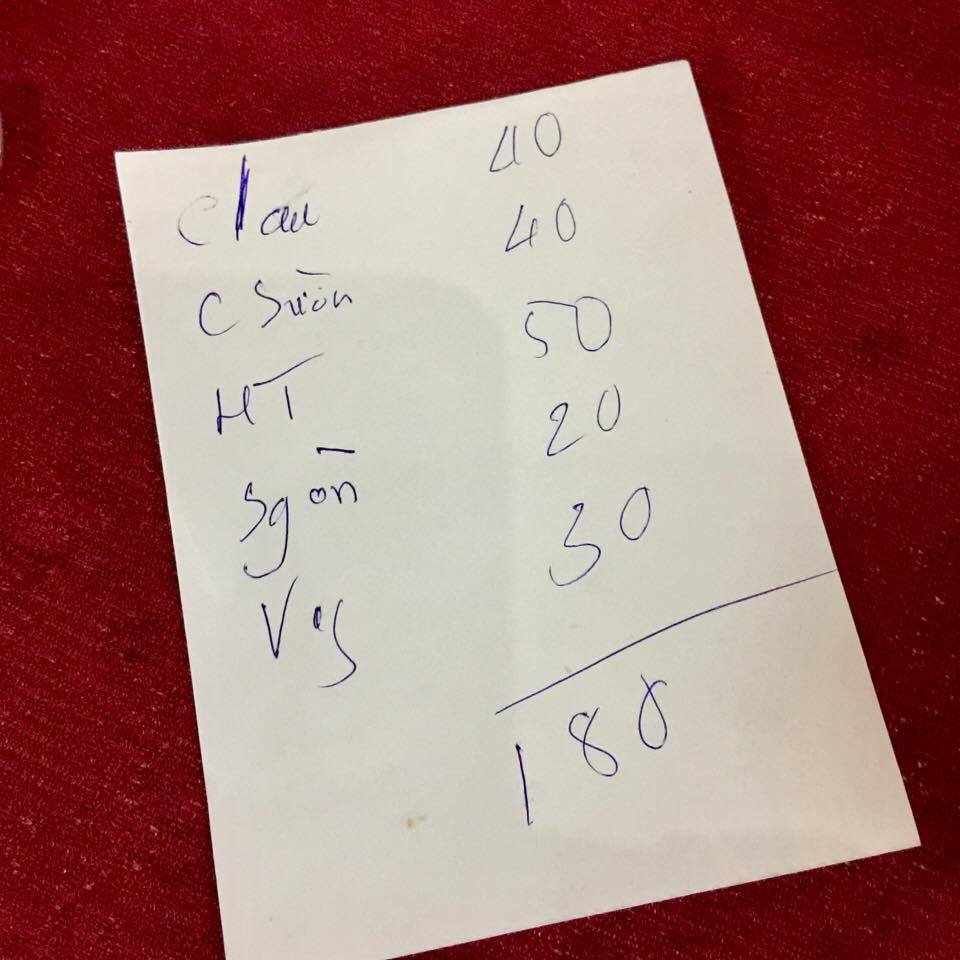 40
C Sườn 40
HT 50
Sgòn 20
Vy 30
180